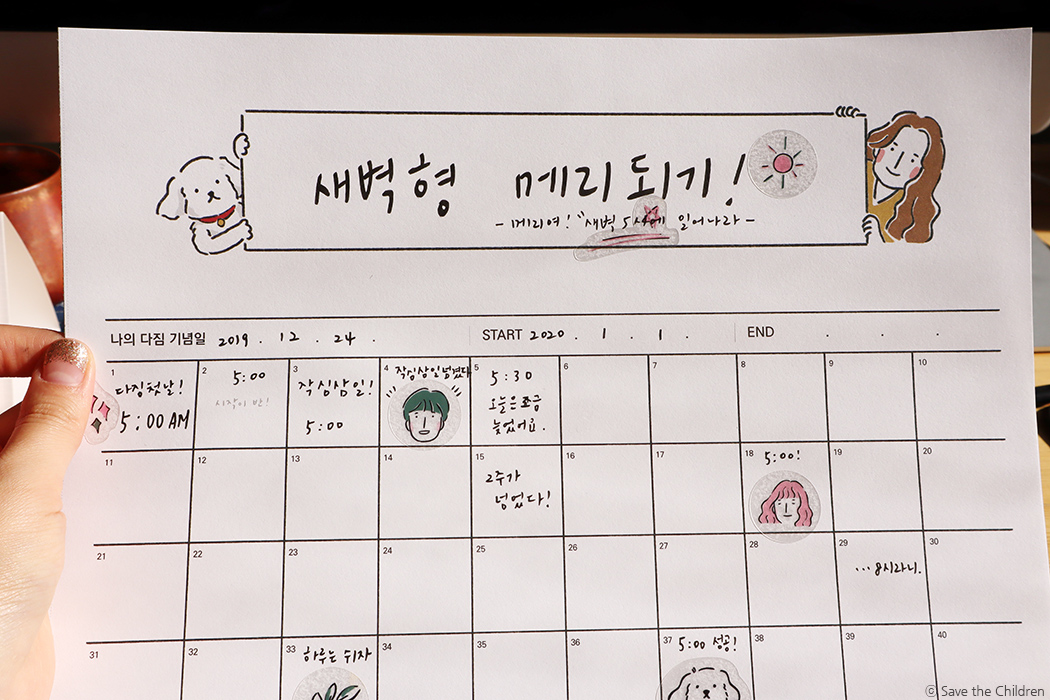 새벽형 메리되기!
- 메리여! "새벽 5시에 일어나라 -
나의 다짐 기념일 2019 . 12 . 24 . START 2020 . 1 . 1 . END . . .
1 2 3 4 5 6 7 8 9 10
다짐첫날!
5:00 AM
5:00
시작이 반!
작심삼일!
5:00
작심삼일넘겼다
5:30
오늘은조금
늦었어요.
11 12 13 14 15 16 17 18 19 20
2주가
넘었다!
5:00!
21 22 23 24 25 26 27 28 29 30
...8시라니.
31 32 33 34 35 36 37 38 39 40
하루는 쉬자
5:00 성공!
ⓒ Save the Children